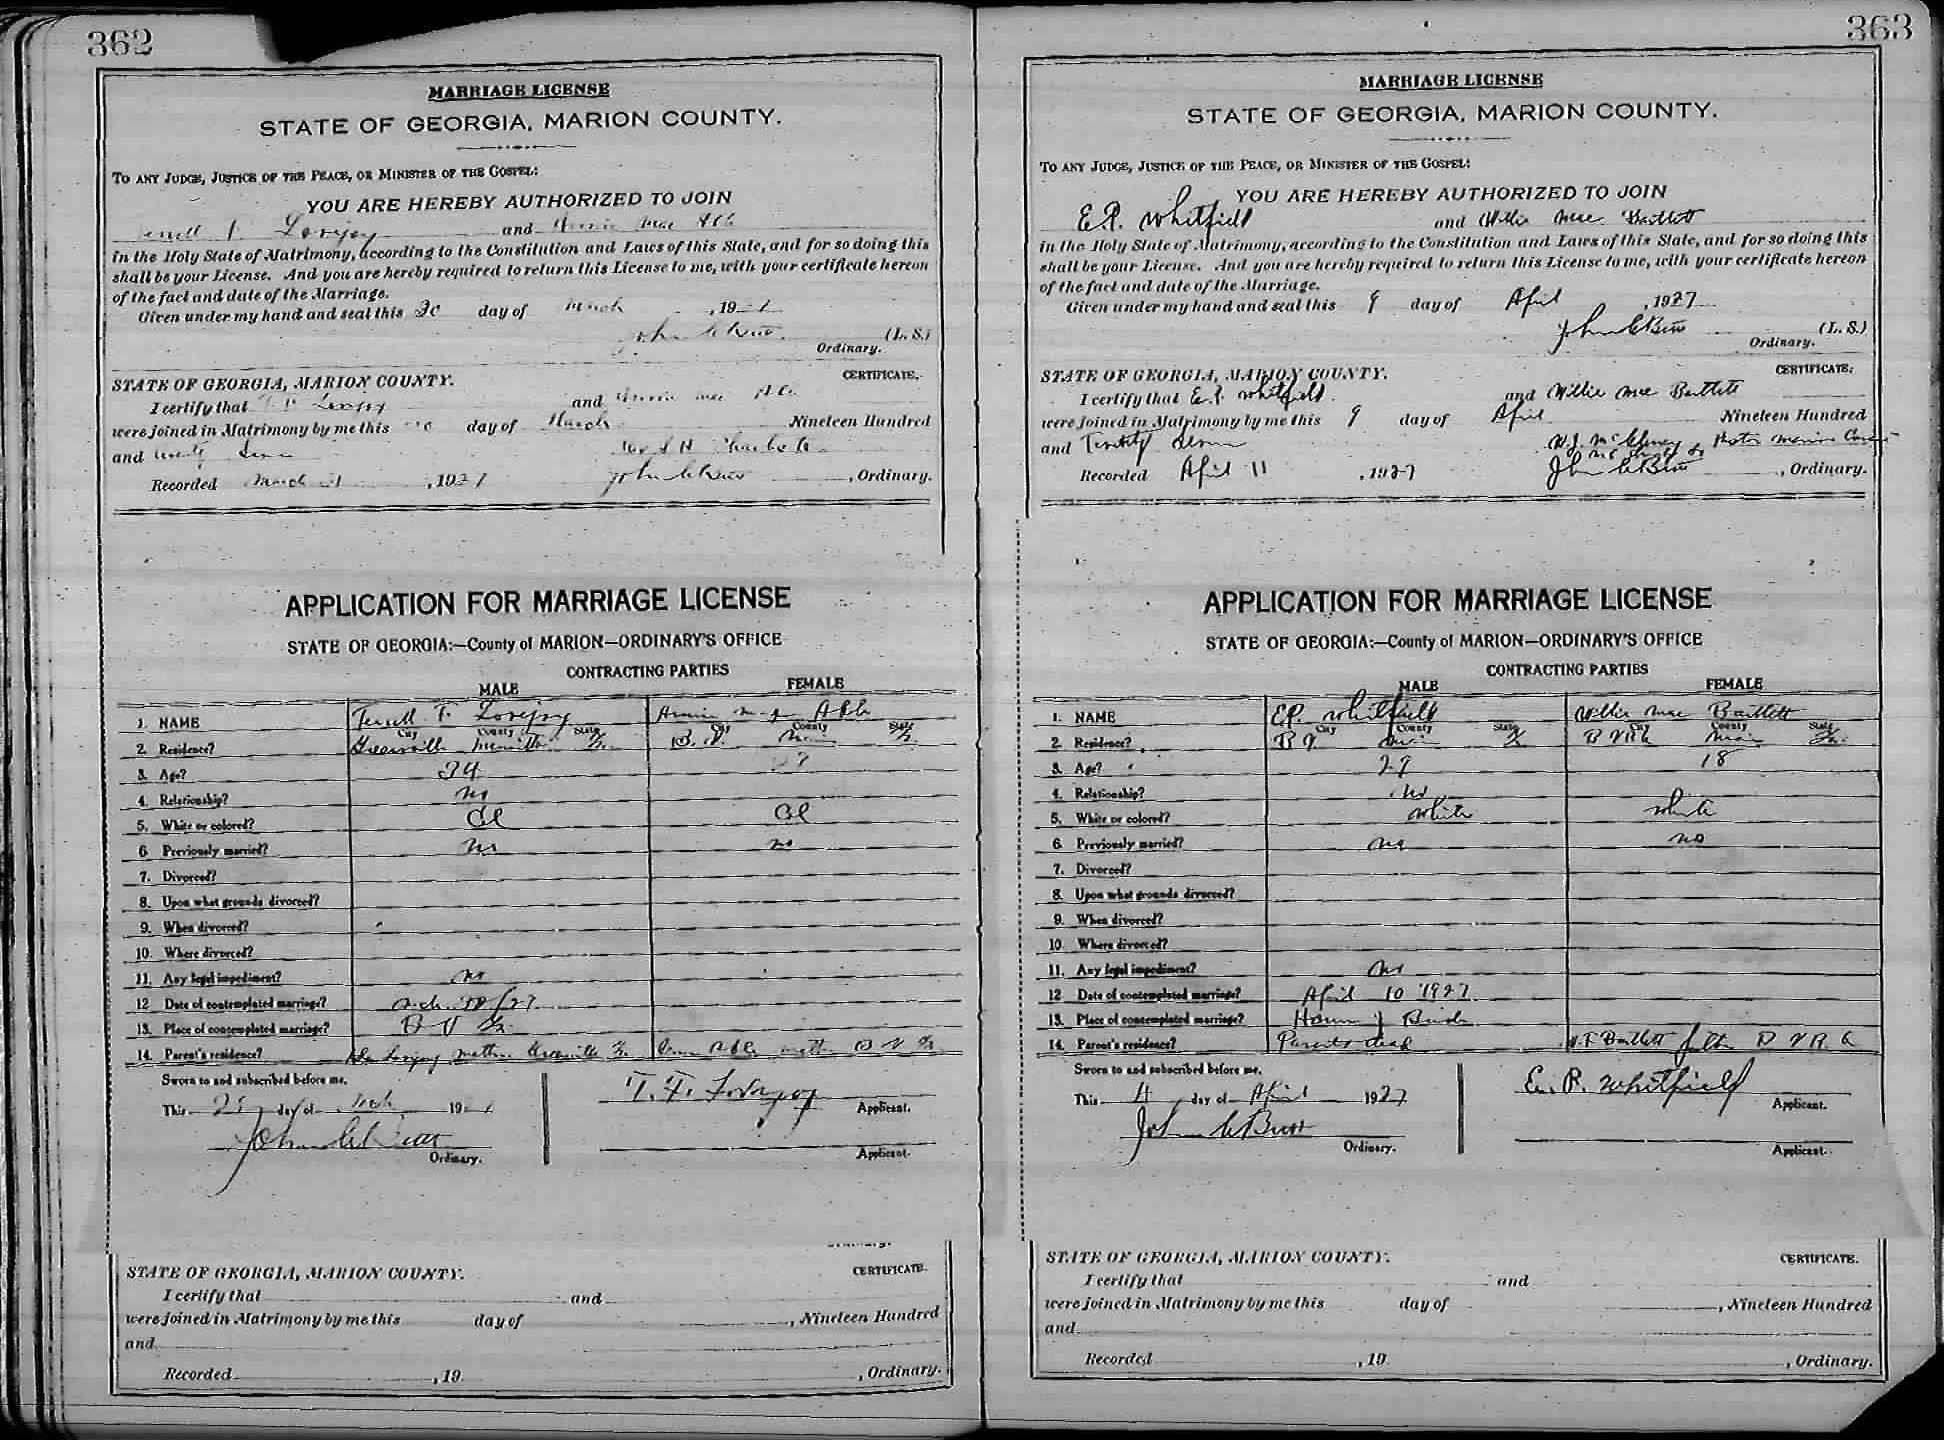 362
MARRIAGE LICENSE
STATE OF GEORGIA, MARION COUNTY.
TO ANY JUDGE, JUSTICE OF THE PEACE, OR MINISTER OF THE GOSPEL:
YOU ARE HEREBY AUTHORIZED TO JOIN
Lovejoy and Mae
in the Holy State of Matrimony, according to the Constitution and Laws of this State, and for so doing this
shall be your License. And you are hereby required to return this License to me, with your certificate hereon
of the fact and date of the Marriage.
Given under my hand and seal this 30 day of March , 19
John C Butt (L. S.)
Ordinary.
STATE OF GEORGIA, MARION COUNTY. CERTIFICATE.
I certify that Lovejoy and Mae
were joined in Matrimony by me this day of March Nineteen Hundred
and twenty seven
Recorded March 31 , 1927 John C Butt , Ordinary.
APPLICATION FOR MARRIAGE LICENSE
STATE OF GEORGIA:—County of MARION—ORDINARY'S OFFICE
CONTRACTING PARTIES
MALE FEMALE
1. NAME Terrell F. Lovejoy
City County State City County State
2. Residence? Greenville Ga B. V. Ga
3. Age? 24
4. Relationship? no
5. White or colored? Col Col
6 Previously married? no no
7. Divorced?
8. Upon what grounds divorced?
9. When divorced?
10. Where divorced?
11. Any legal impediment? no
12 Date of contemplated marriage? /27
13. Place of contemplated marriage? B V Ga
14. Parent's residence? Lovejoy mother Greenville Ga mother B V Ga
Sworn to and subscribed before me.
This day of 19
T. F. Lovejoy
Applicant.
John C Butt
Ordinary.
Applicant.
STATE OF GEORGIA, MARION COUNTY. CERTIFICATE.
I certify that and
were joined in Matrimony by me this day of , Nineteen Hundred
and
Recorded , 19 , Ordinary.
363
MARRIAGE LICENSE
STATE OF GEORGIA, MARION COUNTY.
TO ANY JUDGE, JUSTICE OF THE PEACE, OR MINISTER OF THE GOSPEL:
YOU ARE HEREBY AUTHORIZED TO JOIN
E.R. Whitfield and Willie Mae Bartlett
in the Holy State of Matrimony, according to the Constitution and Laws of this State, and for so doing this
shall be your License. And you are hereby required to return this License to me, with your certificate hereon
of the fact and date of the Marriage.
Given under my hand and seal this 9 day of April , 1927
John C Butt (L. S.)
Ordinary.
STATE OF GEORGIA, MARION COUNTY. CERTIFICATE.
I certify that E.R. Whitfield and Willie Mae Bartlett
were joined in Matrimony by me this 9 day of April Nineteen Hundred
and Twenty Seven Pastor Marion
Recorded April 11 , 1927 John C Butt , Ordinary.
APPLICATION FOR MARRIAGE LICENSE
STATE OF GEORGIA:—County of MARION—ORDINARY'S OFFICE
CONTRACTING PARTIES
MALE FEMALE
1. NAME E.R. Whitfield Willie Mae Bartlett
City County State City County State
2. Residence? B V Ga B V Ga
3. Age? 29 18
4. Relationship? No
5. White or colored? White white
6 Previously married? no no
7. Divorced?
8. Upon what grounds divorced?
9. When divorced?
10. Where divorced?
11. Any legal impediment? no
12 Date of contemplated marriage? April 10 1927
13. Place of contemplated marriage? Home of Bride
14. Parent's residence? Parents dead Bartlett father B V
Sworn to and subscribed before me.
This 4 day of April 1927
E. R. Whitfield
Applicant.
John C Butt
Ordinary.
Applicant.
STATE OF GEORGIA, MARION COUNTY. CERTIFICATE.
I certify that and
were joined in Matrimony by me this day of , Nineteen Hundred
and
Recorded , 19 , Ordinary.